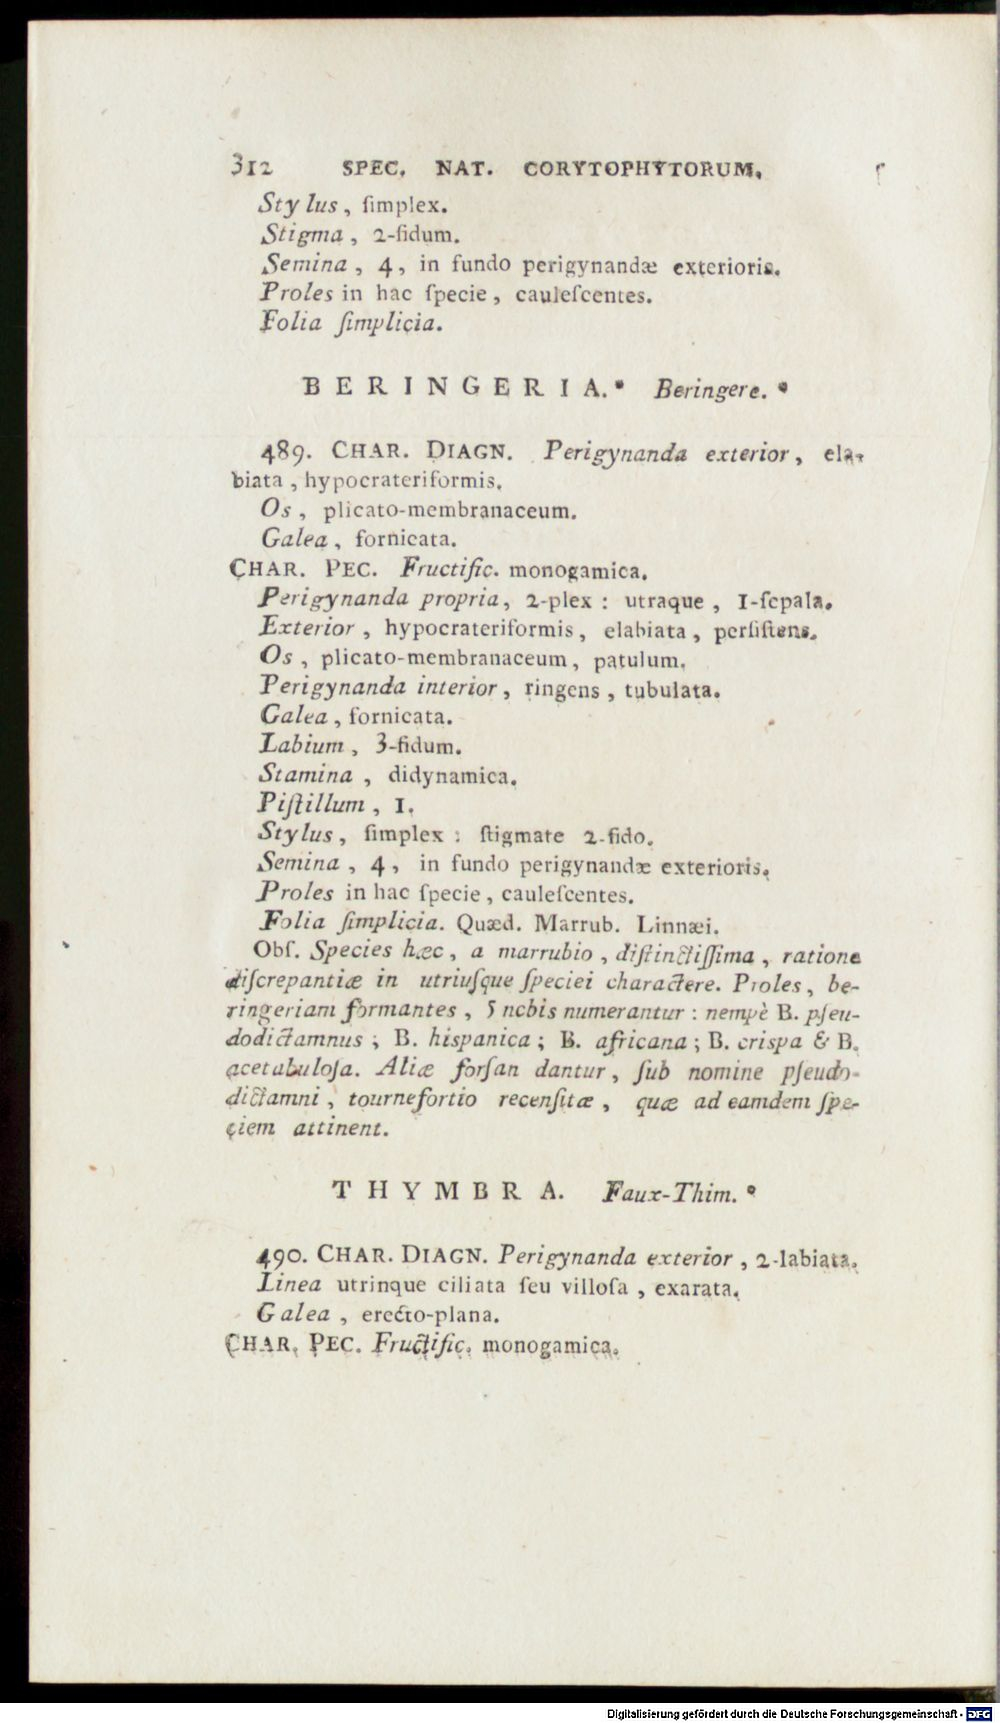 312 SPEC. NAT. CORYTOPHYTORUM.
Stylus, ſimplex.
Stigma, 2-fidum.
Semina, 4, in fundo perigynandæ exterioris.
Proles in hac ſpecie, cauleſcentes.
Folia ſimplicia.
BERINGERIA.* Beringere. *
489. CHAR. DIAGN. Perigynanda exterior, ela-
biata, hypocrateriformis.
Os, plicato-membranaceum.
Galea, fornicata.
CHAR. PEC. Fructific. monogamica.
Perigynanda propria, 2-plex : utraque, 1-ſepala.
Exterior, hypocrateriformis, elabiata, perſiſtens.
Os, plicato-membranaceum, patulum.
Perigynanda interior, ringens, tubulata.
Galea, fornicata.
Labium, 3-fidum.
Stamina, didynamica.
Piſtillum, 1.
Stylus, ſimplex : ſtigmate 2-fido.
Semina, 4, in fundo perigynandæ exterioris.
Proles in hac ſpecie, cauleſcentes.
Folia ſimplicia. Quæd. Marrub. Linnæi.
Obſ. Species hæc, a marrubio, diſtinctiſſima, ratione
diſcrepantiæ in utriuſque ſpeciei charactere. Proles, be-
ringeriam formantes, 5 nobis numerantur : nempè B. pſeu-
dodictamnus ; B. hispanica ; B. africana ; B. crispa & B.
acetabuloſa. Aliæ forſan dantur, ſub nomine pſeudo-
dictamni, tournefortio recenſitæ, quæ ad eamdem ſpe-
ciem attinent.
THYMBRA. Faux-Thim. *
490. CHAR. DIAGN. Perigynanda exterior, 2-labiata.
Linea utrinque ciliata ſeu villoſa, exarata.
Galea, erecto-plana.
CHAR. PEC. Fructific. monogamica.
Digitalisierung gefördert durch die Deutsche Forschungsgemeinschaft - DFG